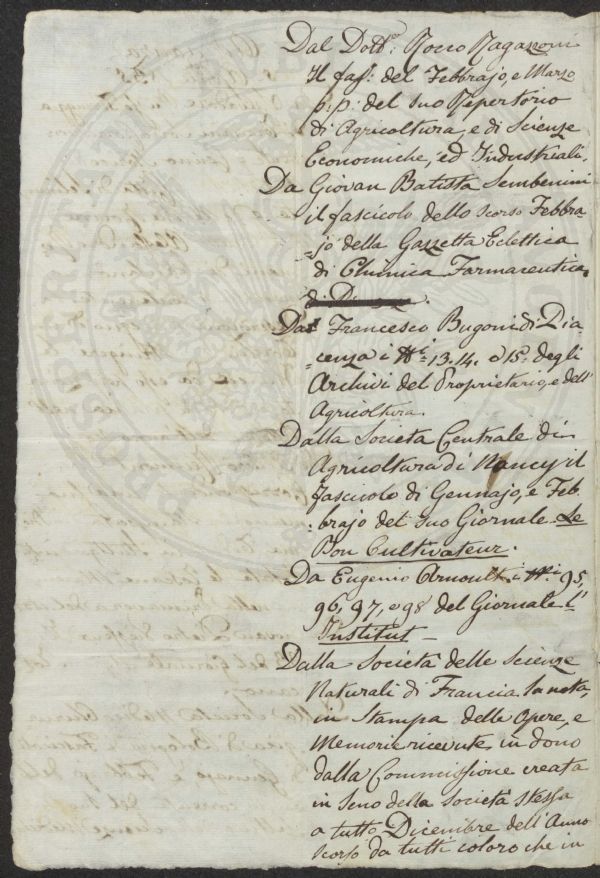 Dal Dott.r Rocco Ragazzoni
Il fas: del Febbrajo, e Marzo
p:p: del suo Repertorio
di Agricoltura, e di Scienze
Economiche, ed Industriali.
Da Giovan Batista Sembenini
il fascicolo dello scorso Febbra-
=jo della Gazzetta Eclettica
di Chimica Farmaceutica.
Da Francesco Bugoni di Pia-
=cenza i N.i 13. 14. e 15. degli
Archivi del Proprietario, e dell'
Agricoltura.
Dalla Società Centrale di
Agricoltura di Nancy il
fascicolo di Gennajo, e Feb-
=brajo del suo Giornale Le
Bon Cultivateur.
Da Eugenio Arnoult i N.i 95,
96, 97, e 98 del Giornale L'
Institut
Dalla Società delle Scienze
Naturali di Francia la nota
in Stampa delle Opere, e
Memorie ricevute in dono
dalla Commissione creata
in Seno della Società stessa
a tutto Dicembre dell'Anno
scorso da tutti coloro che in